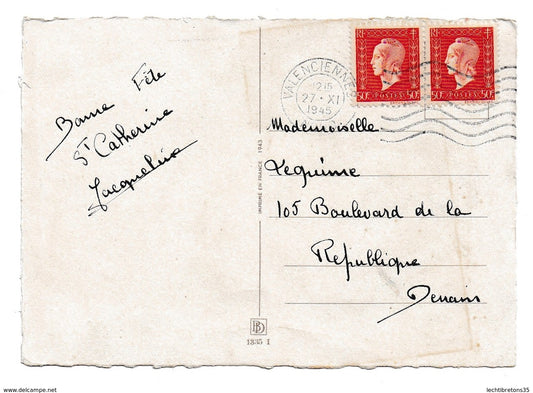 Bonne Fête
St Catherine
Jacqueline
IMPRIMÉ EN FRANCE 1943
BD
1835 1
VALENCIENNES
27 · XI
1945
RF
50c POSTES 50c
RF
50c POSTES 50c
Mademoiselle
Lequime
105 Boulevard de la
République
Denain
www.delcampe.net
lechtibretons35